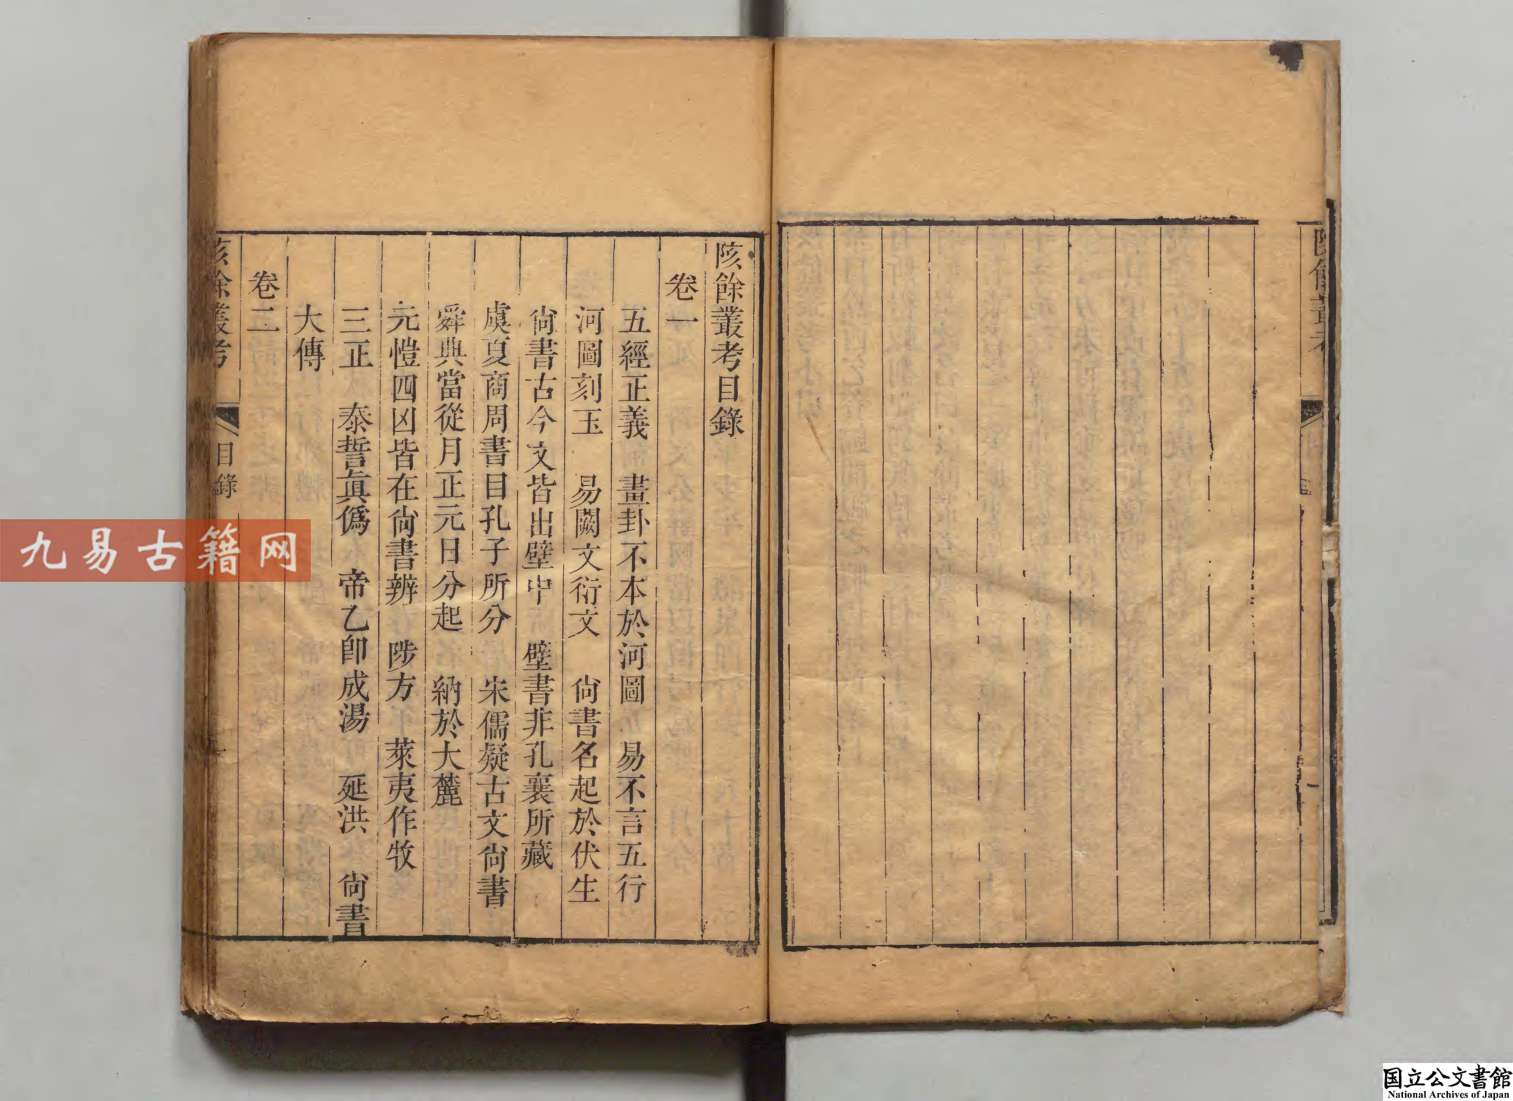 陔餘叢考目錄
卷一
五經正義　畫卦不本於河圖　易不言五行
河圖刻玉　易闕文衍文　尙書名起於伏生
尙書古今文皆出壁中　壁書非孔襄所藏
虞夏商周書目孔子所分　宋儒疑古文尙書
舜典當從月正元日分起　納於大麓
元愷四凶皆在尙書辨　陟方　萊夷作牧
三正　泰誓眞僞　帝乙卽成湯　延洪　尙書
大傳
卷二
陔餘叢考
目錄
一
九易古籍网
国立公文書館
National Archives of Japan